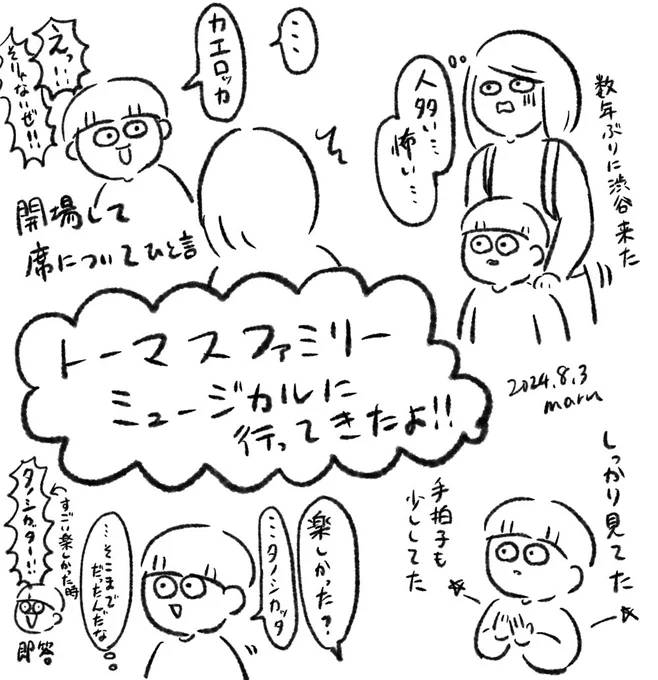 数年ぶりに渋谷来た
人多い…
怖い…
…
カエロッカ
えっ!!
そりゃないぜ!!
開場して
席についてひと言
トーマスファミリー
ミュージカルに
行ってきたよ!!
2024.8.3
maru
しっかり見てた
手拍子も
少ししてた
楽しかった?
…タノシカッタ
…そこまで
だったんだな
すごい楽しかった時
タノシカッター!!
即答。